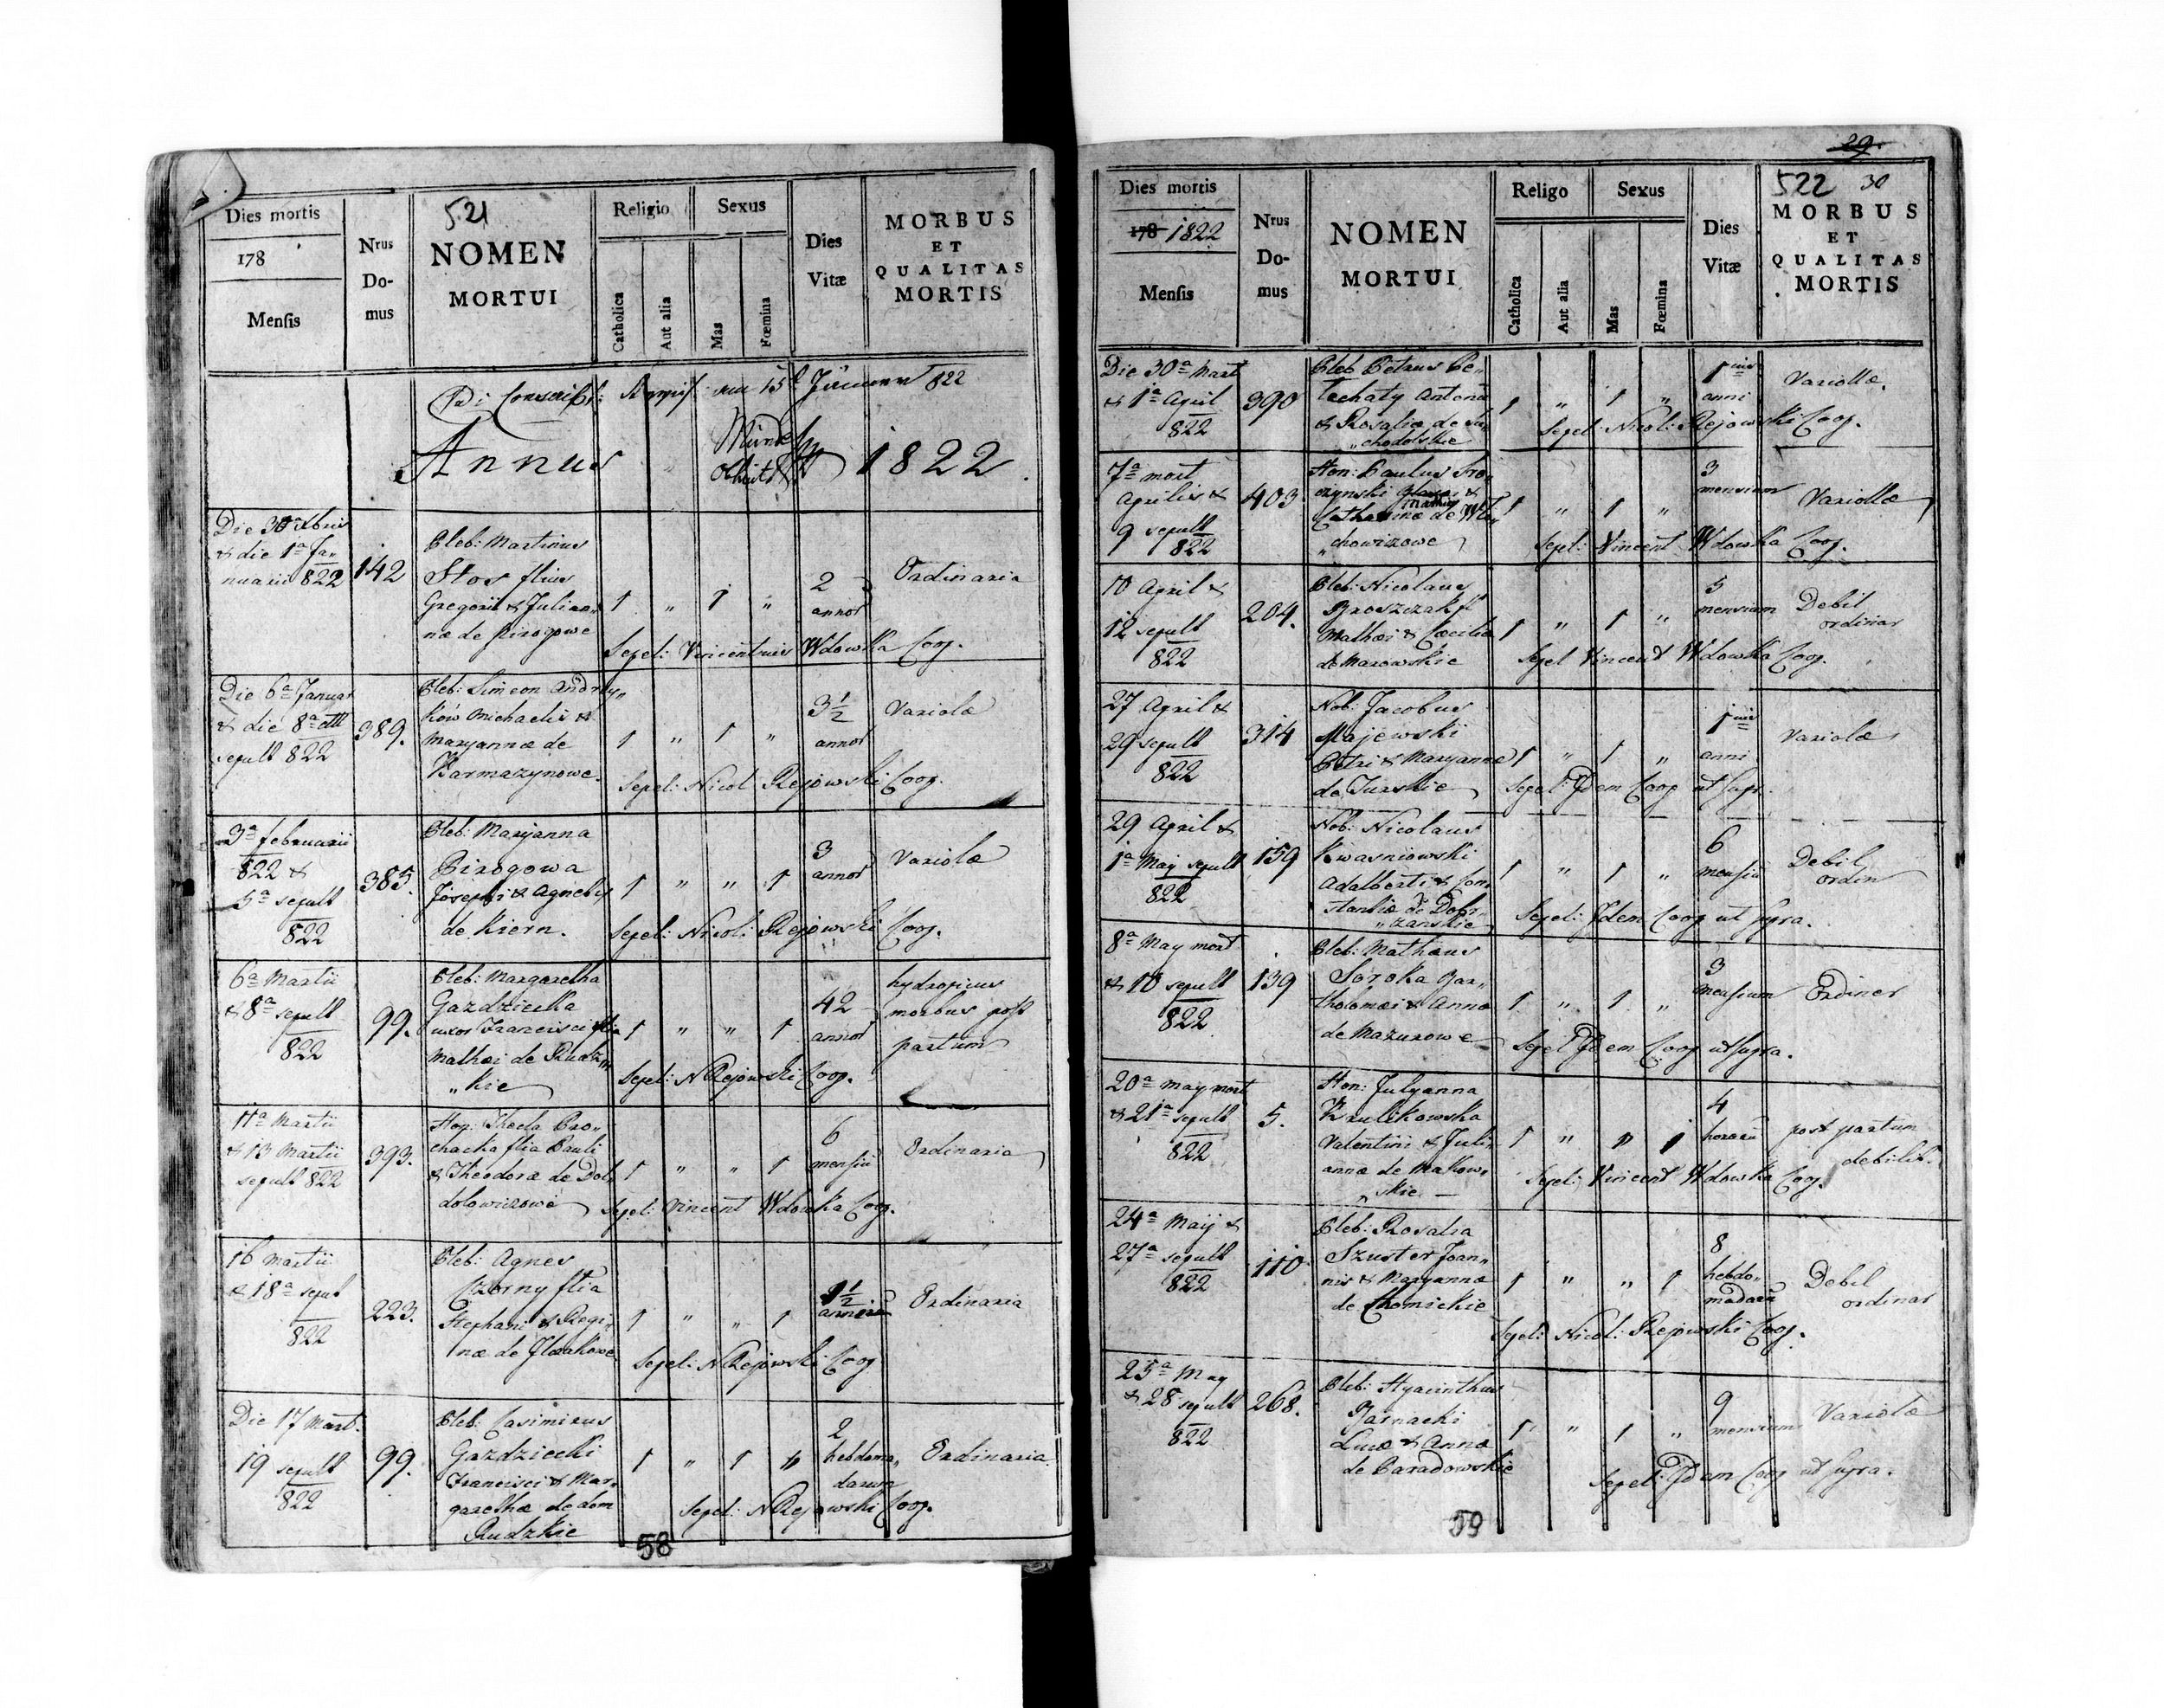 521
Dies mortis
178
Mensis
Nrus
Do-
mus
NOMEN
MORTUI
Religio
Catholica
Aut alia
Sexus
Mas
Fœmina
Dies
Vitæ
MORBUS
ET
QUALITAS
MORTIS
822
Annus 1822
Die 30 Xbris
& die 1a Ja„
nuarii 822
142
Pleb: Martinus
Stos flius
Gregorii & Julian„
næ de Pirogowe
1 „ 1 „
2
annor
Ordinaria
Sepel: Vincentius Wdowka Coop.
Die 6a Januar
& die 8a
sepult 822
389.
Pleb: Simeon Andrey„
ków Michaelis &
Maryannæ de
Karmazynowe.
1 „ 1 „
3½
annor
Variolæ
Sepel: Nicol Rejowski Coop.
3a februarii
822 &
5a sepult
822
385.
Pleb: Maryanna
Pirogowa
Josephi & Agnetis
de Kiern.
1 „ „ 1
3
annor
Variolæ
Sepel: Nicol: Rejowski Coop.
6a Martii
& 8a sepult
822
99.
Pleb: Margaretha
Gazdziecka
uxor Francisci flia
Mathæi de Rudz„
„kie
1 „ „ 1
42
annor
hydropicus
morbus post
partum
Sepel: N Rejowski Coop.
11a Martii
& 13 Martii
sepult 822
393.
Hon: Thecla Pro„
chacka flia Pauli
& Theodoræ de Dol„
dolowiczowe
1 „ „ 1
6
mensiu
Ordinaria
Sepel: Vincent Wdowka Coop.
16 Martii
& 18a sepul
822
223.
Pleb: Agnes
Czorny flia
Stephani & Regi„
næ de
1 „ „ 1
1½
Ordinaria
Sepel: N Rejowski Coop
Die 17 Mart.
19 sepult
822
99.
Pleb: Casimirus
Gazdziecki
Francisci & Mar„
garethæ de dom
Rudzkie
1 „ 1 „
2
hebdoma„
darum
Ordinaria.
Sepel: N Rejowski Coop.
58
29.
522 30
Dies mortis
178 1822
Mensis
Nrus
Do-
mus
NOMEN
MORTUI
Religo
Catholica
Aut alia
Sexus
Mas
Fœmina
Dies
Vitæ
MORBUS
ET
QUALITAS
MORTIS
Die 30a Mart
& 1a April
822
390
Pleb Petrus Pe„
techaty Antonii
& Rosaliæ de Su„
„chodolskie
1 „ 1 „
1ius
anni
Variollæ.
Sepel: Nicol: Rejowski Coop.
7a mort
Aprilis &
9 sepult
822
403
Hon: Paulus
Catharinæ de
„chowizowe
1 „ 1 „
3
mensium
Variollæ
Sepel: Vincent Wdowka Coop.
10 April &
12 sepult
822
204.
Pleb: Nicolaus
Mathæi & Cæciliæ
de Mazowskie
1 „ 1 „
5
mensium
Debil
ordinar
Sepel Vincent Wdowka Coop.
27 April &
29 sepult
822
314
Nob: Jacobus
Majewski
Petri & Maryannæ
de Turskie
1 „ 1 „
1ius
anni
Variolæ
Sepel: Idem Coop ut supr.
29 April &
1a May sepult
822
159
Nob: Nicolaus
Kwasniowski
Adalberti & Con„
stantiæ de Dobr„
„zanskie
1 „ 1 „
6
mensiu
Debil
ordin
Sepel: Idem Coop ut supra.
8a May mort
& 10 sepult
822
139
Pleb: Mathæus
Soroka Bar„
tholomæi & Annæ
de Mazurowe
1 „ 1 „
3
mensium
Ordiner
Sepel Idem Coop ut supra.
20a May mort
& 21a sepult
822
5.
Hon: Julyanna
Krulikowska
Valentini & Juli„
annæ de Makow„
„skie
1 „ „ 1
4
horaru
post partum
debilit.
Sepel: Vincent Wdowka Coop.
24a Maij &
27a sepult
822
110.
Pleb: Rosalia
Szuster Joan„
nis & Maryannæ
de Chomickie
1 „ „ 1
8
hebdo„
madaru
Debil
ordinar
Sepel: Nicol: Rejowski Coop.
25a May
& 28 sepult
822
268.
Pleb: Hyacinthus
Barnacki
Lucæ & Annæ
de Paradowskie
1 „ 1 „
9
mensium
Variolæ
Sepel: Idem Coop ut supra.
59